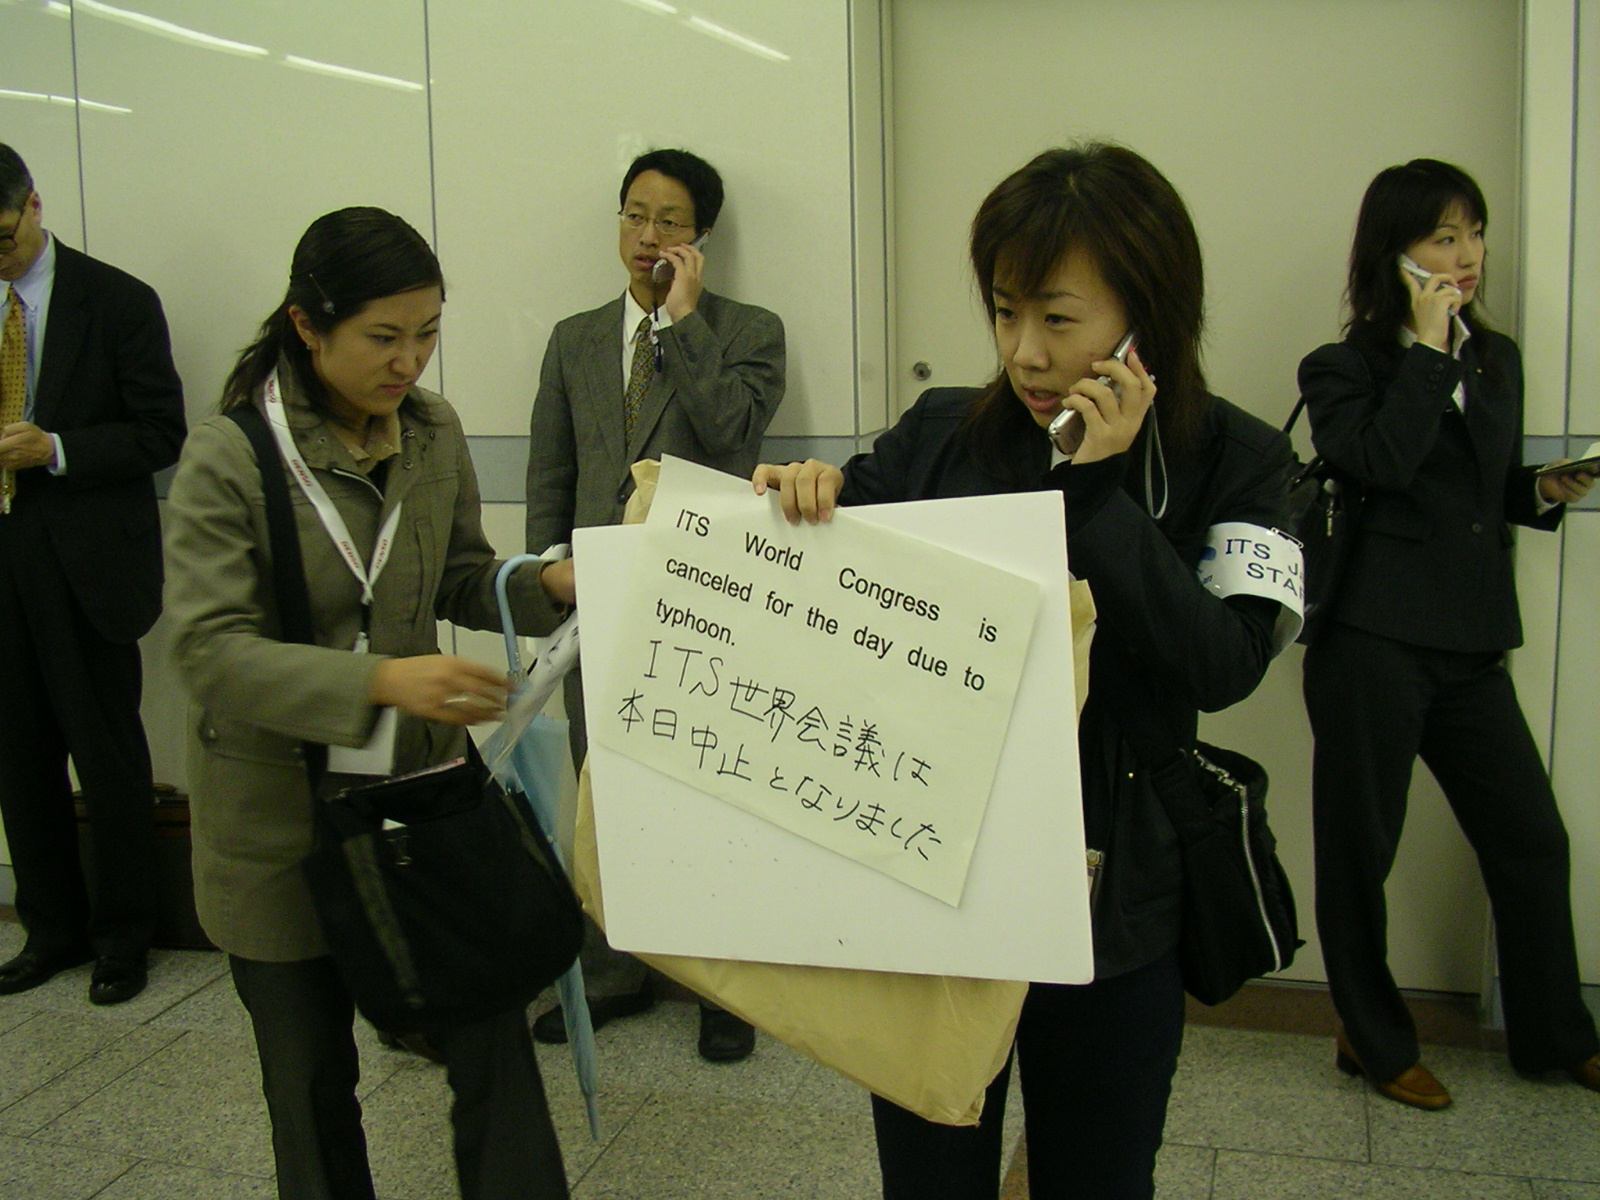 ITS World Congress is
canceled for the day due to
typhoon.
ITS世界会議は
本日中止となりました
ITS